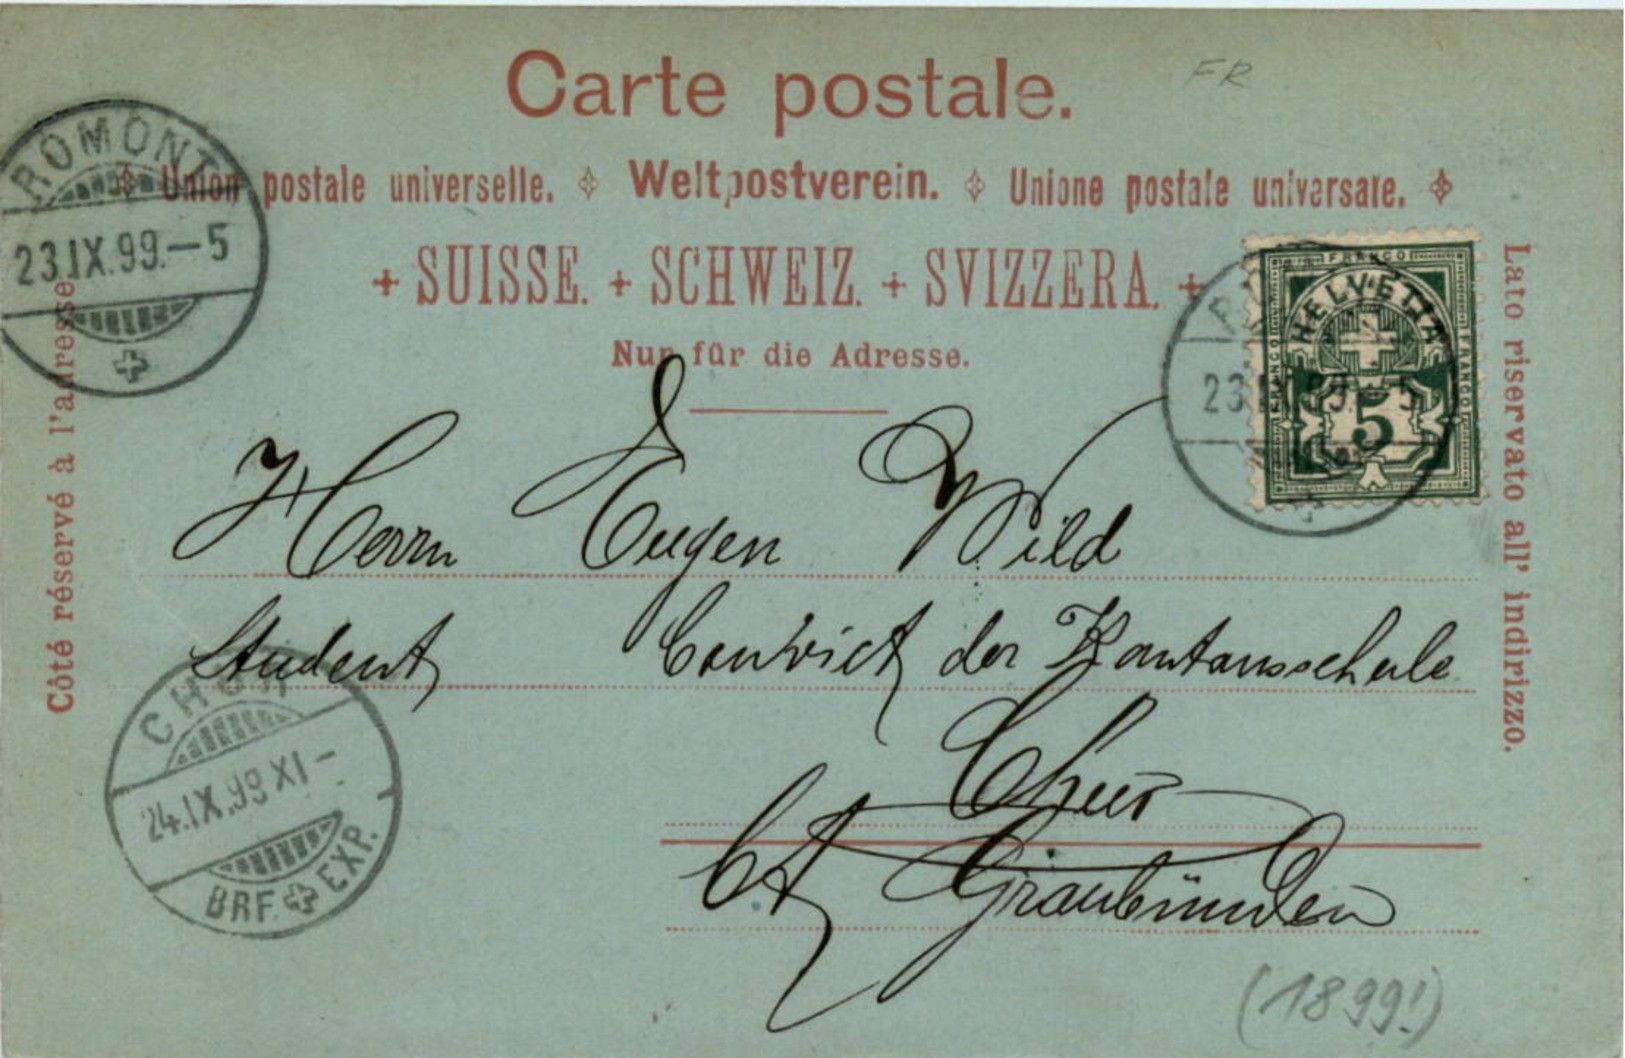 Carte postale.
FR
Union postale universelle. Weltpostverein. Unione postale universale.
+ SUISSE. + SCHWEIZ. + SVIZZERA. +
Nur für die Adresse.
Côté réservé à l'adresse
Lato riservato all' indirizzo.
ROMONT
23.IX.99.–5
FRANCO
HELVETIA
FRANCO
FRANCO
5
Herrn Eugen Wild
Student Convict der Kantonsschule
Chur
Ct Graubünden
CHUR
24.IX.99 XI –
BRF. EXP.
(1899!)